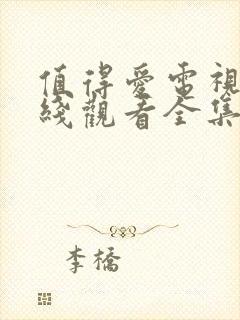 值得爱電視
綫觀看全集
李橋